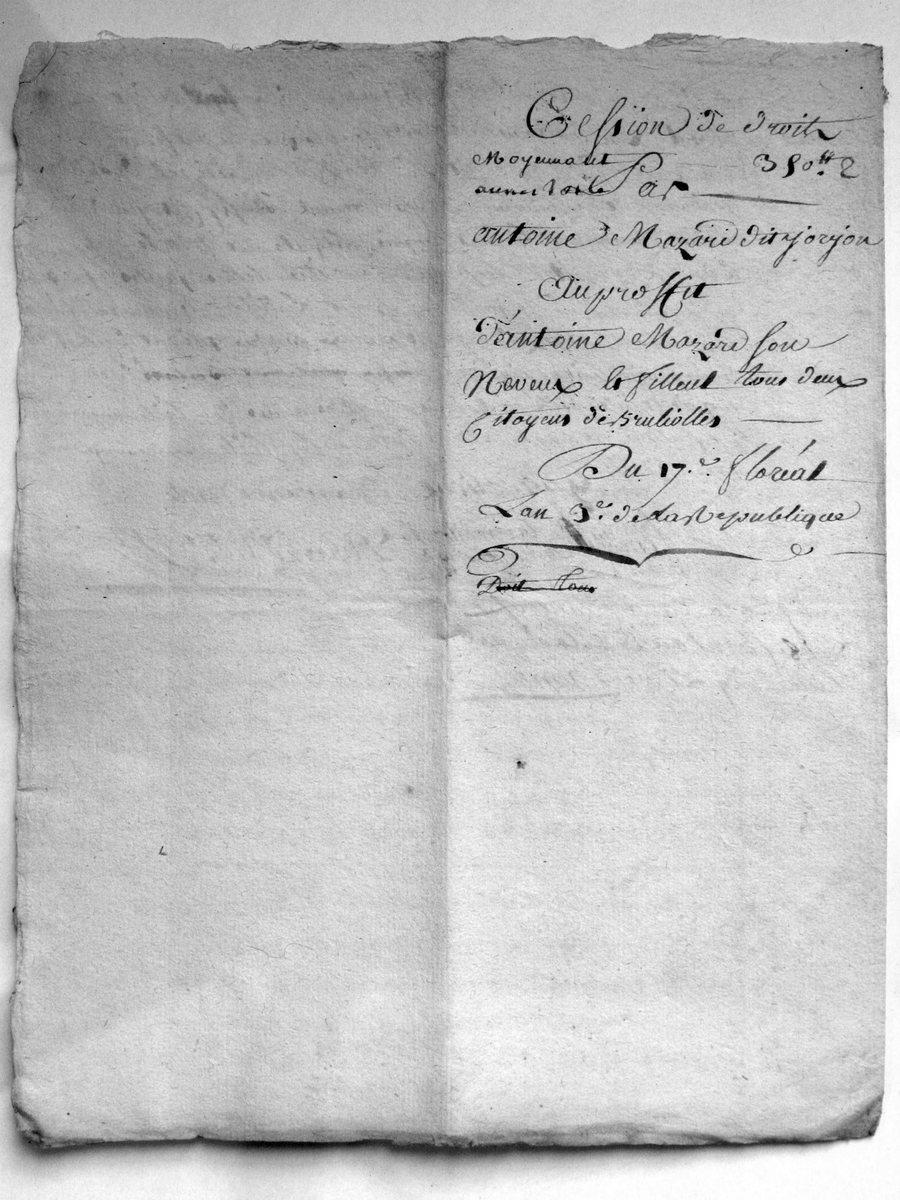 Cession de droits
Moyennant 350# 2
Par
antoine Mazard dit jorjon
Au proffit
d'antoine Mazard son
Neveux & filleul tous deux
Citoyens de Bruliolles
Du 17.e floréal
Lan 3.e de La Republique
Doit